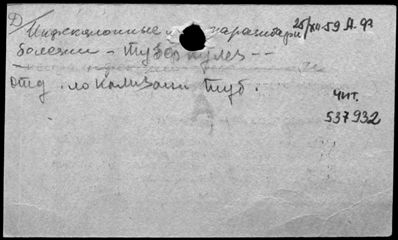 Д/ Инфекционные и паразитарн 25/XII-59 А.Ф
болезни - туберкулез --
отд. локализации туб.
чит.
537932